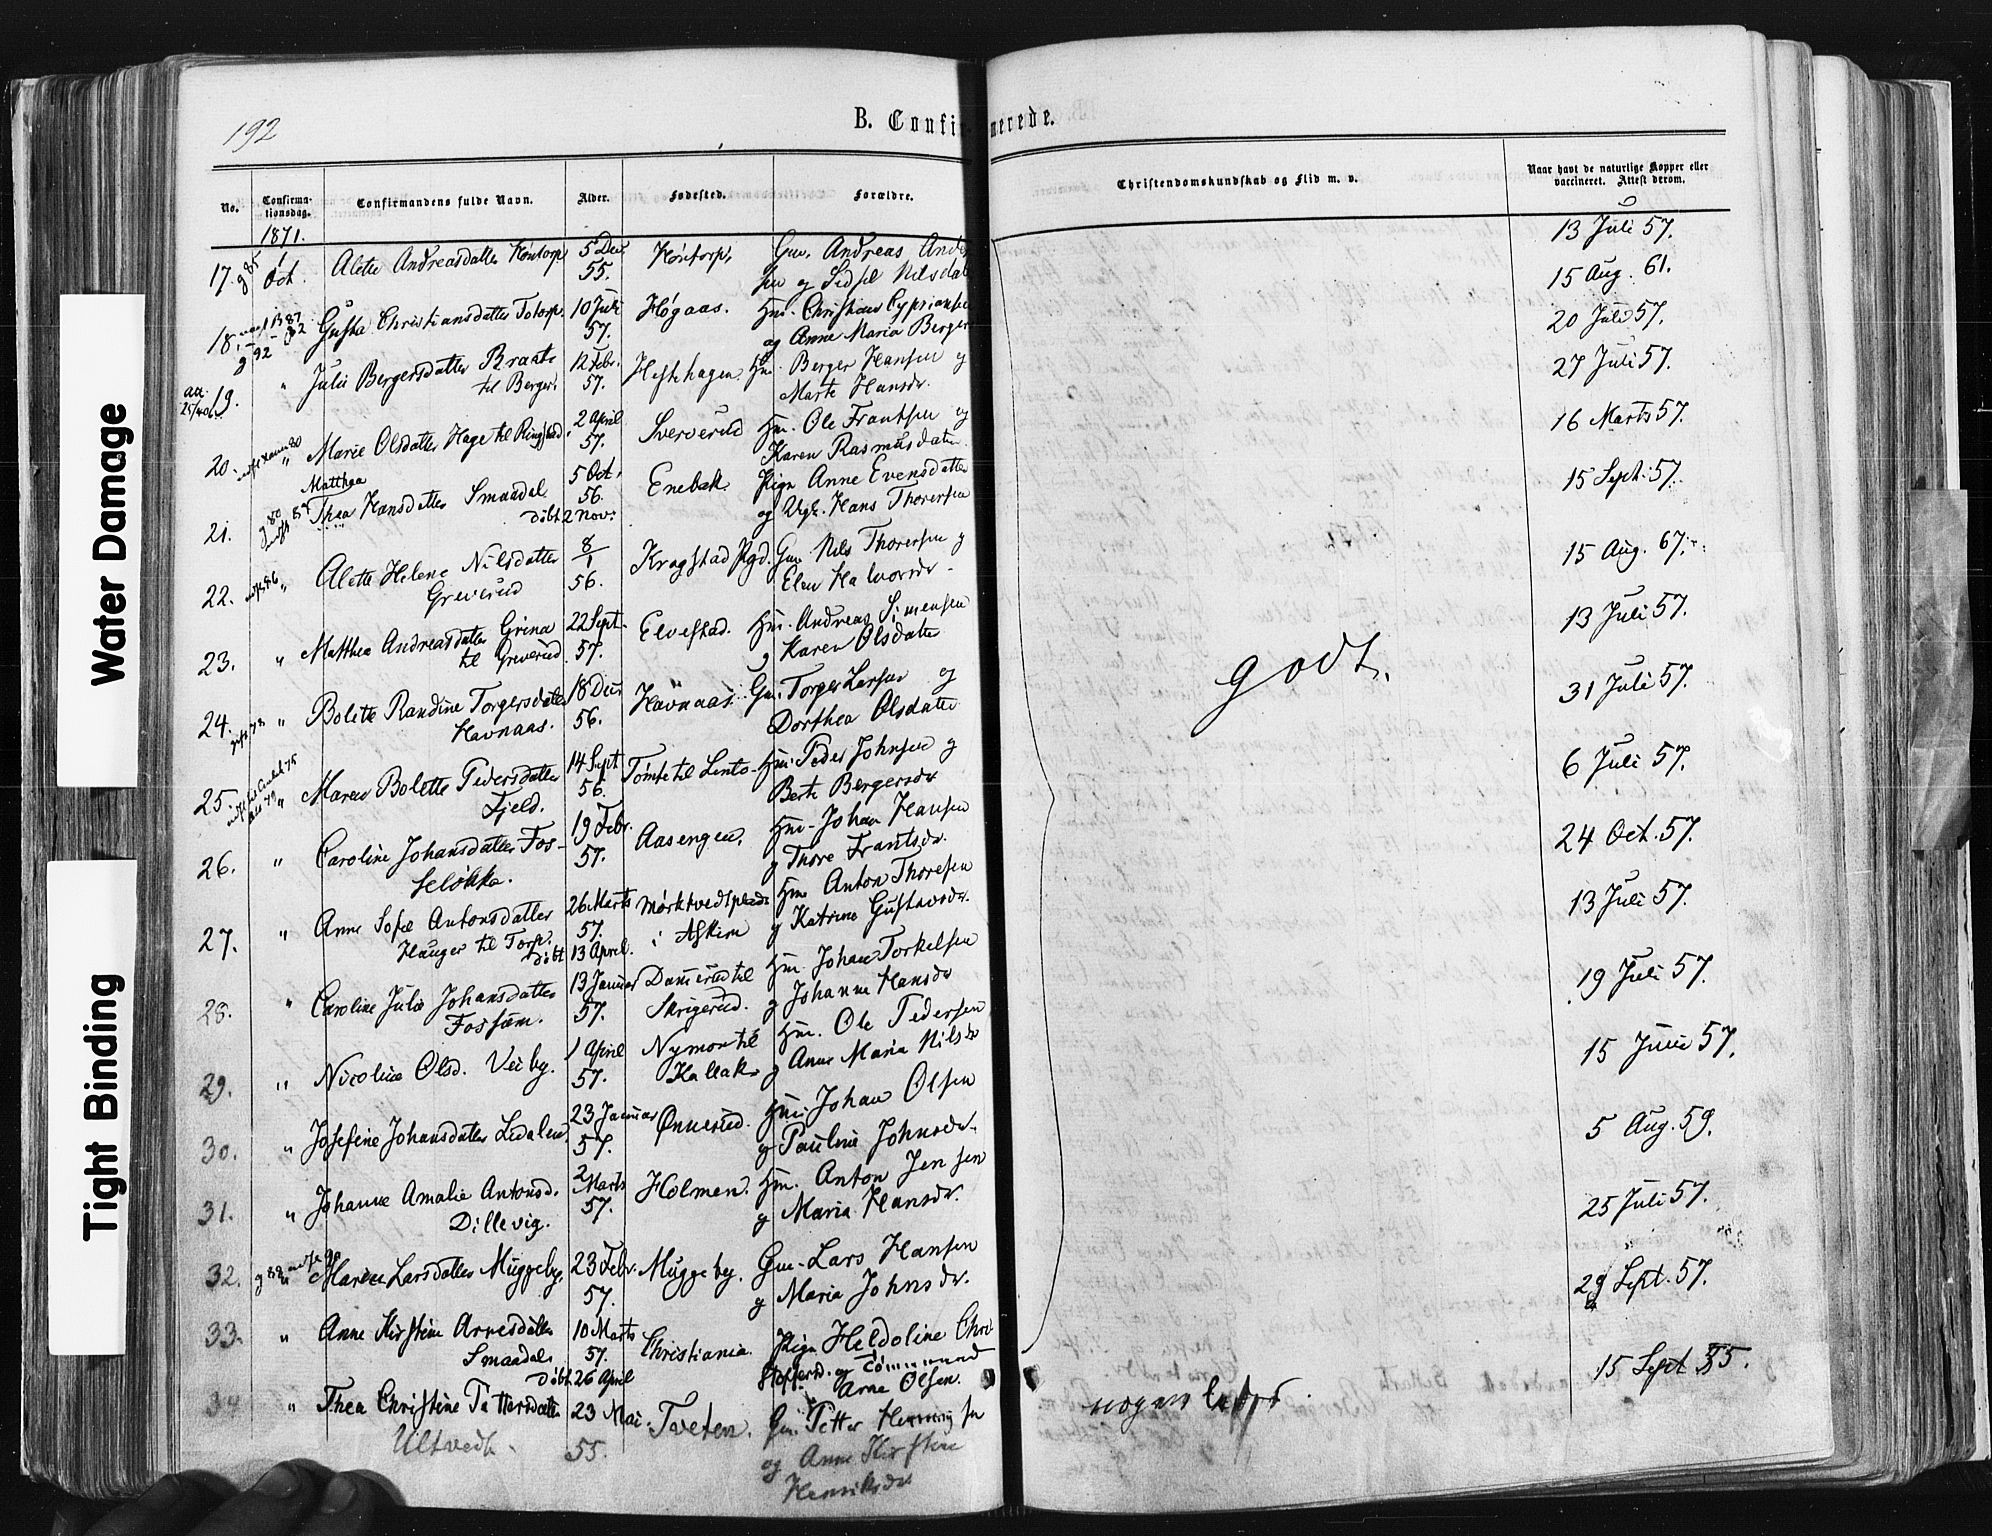 192
B. Confirmerede.
No.
Confirma-
tionsdag.
Confirmandens fulde Navn.
Alder.
Fødested.
Forældre.
Christendomskundskab og Flid m. v.
Naar havt de naturlige Kopper eller
vaccineret. Attest derom.
1871.
17. g 85 1 Oct. Alette Andreasdatter Høntorp 5 Dec 55. Høntorp, Gm. Andreas Ander
sen og Sidsel Nilsdat
13 Juli 57.
18. g 92 Gusta Christiansdatter Totorp. 10 Juli 57. Høgaas. Hm. Christian Cypriansen
og Anne Maria Berger
15 Aug. 61.
aa. 25/40
19. " Julie Bergersdatter Braate
til Berger. 12 Febr. 57. Hestehagen. Hm. Berger Hansen og
Marte Hansdr.
20 Juli 57.
20. " Marie Olsdatter Hage til Ringstad. 2 April 57. Sververud Hm. Ole Frantsen og
Karen Rasmusdatter
27 Juli 57.
Matthea
21. g 80 Thea Hansdatter Smaadal 5 Oct. 56.
Døbt 2 Nov. Enebak Pign Anne Evensdatter
og Ugk. Hans Thoresen
16 Marts 57.
22. " Alette Helene Nilsdatter
Greverud 8/1 56. Kragstad Pgd. Gm Nils Thorersen og
Elen Halvorsdr.
15 Sept. 57.
23. " Matthea Andreasdatter Grina
til Greverud 22 Sept. 57. Elvestad. Hm. Andreas Simensen
og Karen Olsdatter
15 Aug. 67.
24. " Bolette Randine Torgersdatter
Havnaas. 18 Dec 56. Havnaas. Gm. Torger Larsen og
Dorthea Olsdatter
13 Juli 57.
25. " Maren Bolette Pedersdatter
Fjeld. 14 Sept 56. Tomte til Lento Hm. Peder Johnsen og
Berte Bergersdr
31 Juli 57.
26. " Caroline Johansdatter Fos-
seløkka. 19 Febr. 57. Aasengen. Hm. Johan Hansen
og Thore Frantsdr.
6 Juli 57.
27. " Anne Sofie Antonsdatter
Hauger til Torp. 26 Marts 57.
Døbt 13 April. Mørktvedtplads
i Askim Hm Anton Thoresen
og Katrine Gustavsdr.
24 Oct. 57.
28. " Caroline Julie Johansdatter
Fossum. 13 Januar 57. Damerud til
Skrigerud. Hm. Johan Torkelsen
og Johanne Hansdr
13 Juli 57.
29. " Nicoline Olsd. Veiby. 1 April 57. Nymon til
Kallak Hm. Ole Pedersen
og Anne Maria Nilsdr
19 Juli 57.
30. " Josefine Johansdatter Lidalen 23 Januar 57. Ønnerud. Hm. Johan Olsen
og Pauline Johnsdr.
15 Juni 57.
31. " Johanne Amalie Antonsd.
Dillevig. 2 Marts 57. Holmen. Hm. Anton Jensen
og Maria Hansdr.
5 Aug. 59.
32. " Maren Larsdatter Muggeby. 23 Febr. 57. Muggeby. Gm. Lars Hansen
og Maria Johnsdr.
25 Juli 57.
33. " Anne Kirstine Arnesdatter
Smaadal 10 Marts 57.
Døbt 26 April Christiania. Pign Heldoline Chri
stoffersd. og Tømmermand
Arne Olsen.
29 Sept. 57.
34. " Thea Christine Pettersdatter
Ultvedt. 23 Mai 55. Tveten. Gm. Petter Henning sen
og Anne Kirstine
Henriksdr
15 Sept 55.
godt.
Water Damage
Tight Binding